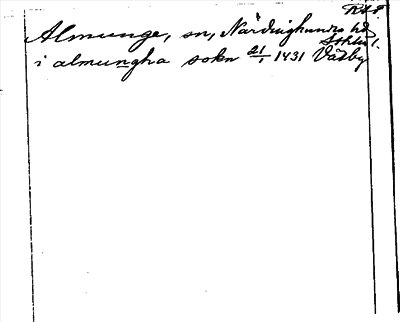 RA8
Almunge, sn, Närdinghundra hd
Sthlm l.
i almungha sokn 21/1 1431 Väsby